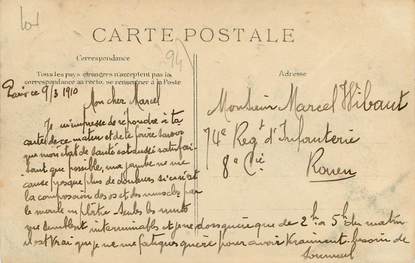 lot
94
CARTE POSTALE
Correspondance
Tous les pays étrangers n'acceptent pas la
correspondance au recto, se renseigner à la Poste
Adresse
Paris ce 9/3 1910
Mon cher Marcel
Je m'empresse de répondre à ta
carte de ce matin et de te faire savoir
que mon état de santé est aussi satisfai-
sant que possible, ma jambe ne me
cause presque plus de douleurs si ce n'est
la compression des os et des muscles par
le membre de plâtre. Seules les nuits
me semblent interminables et je ne dors guère que de 2h à 5h du matin
il est vrai que je ne me fatigue guère pour avoir vraiment besoin de
sommeil
Monsieur Marcel Wibaut
74e Regt d'Infanterie
8e Cie
Rouen